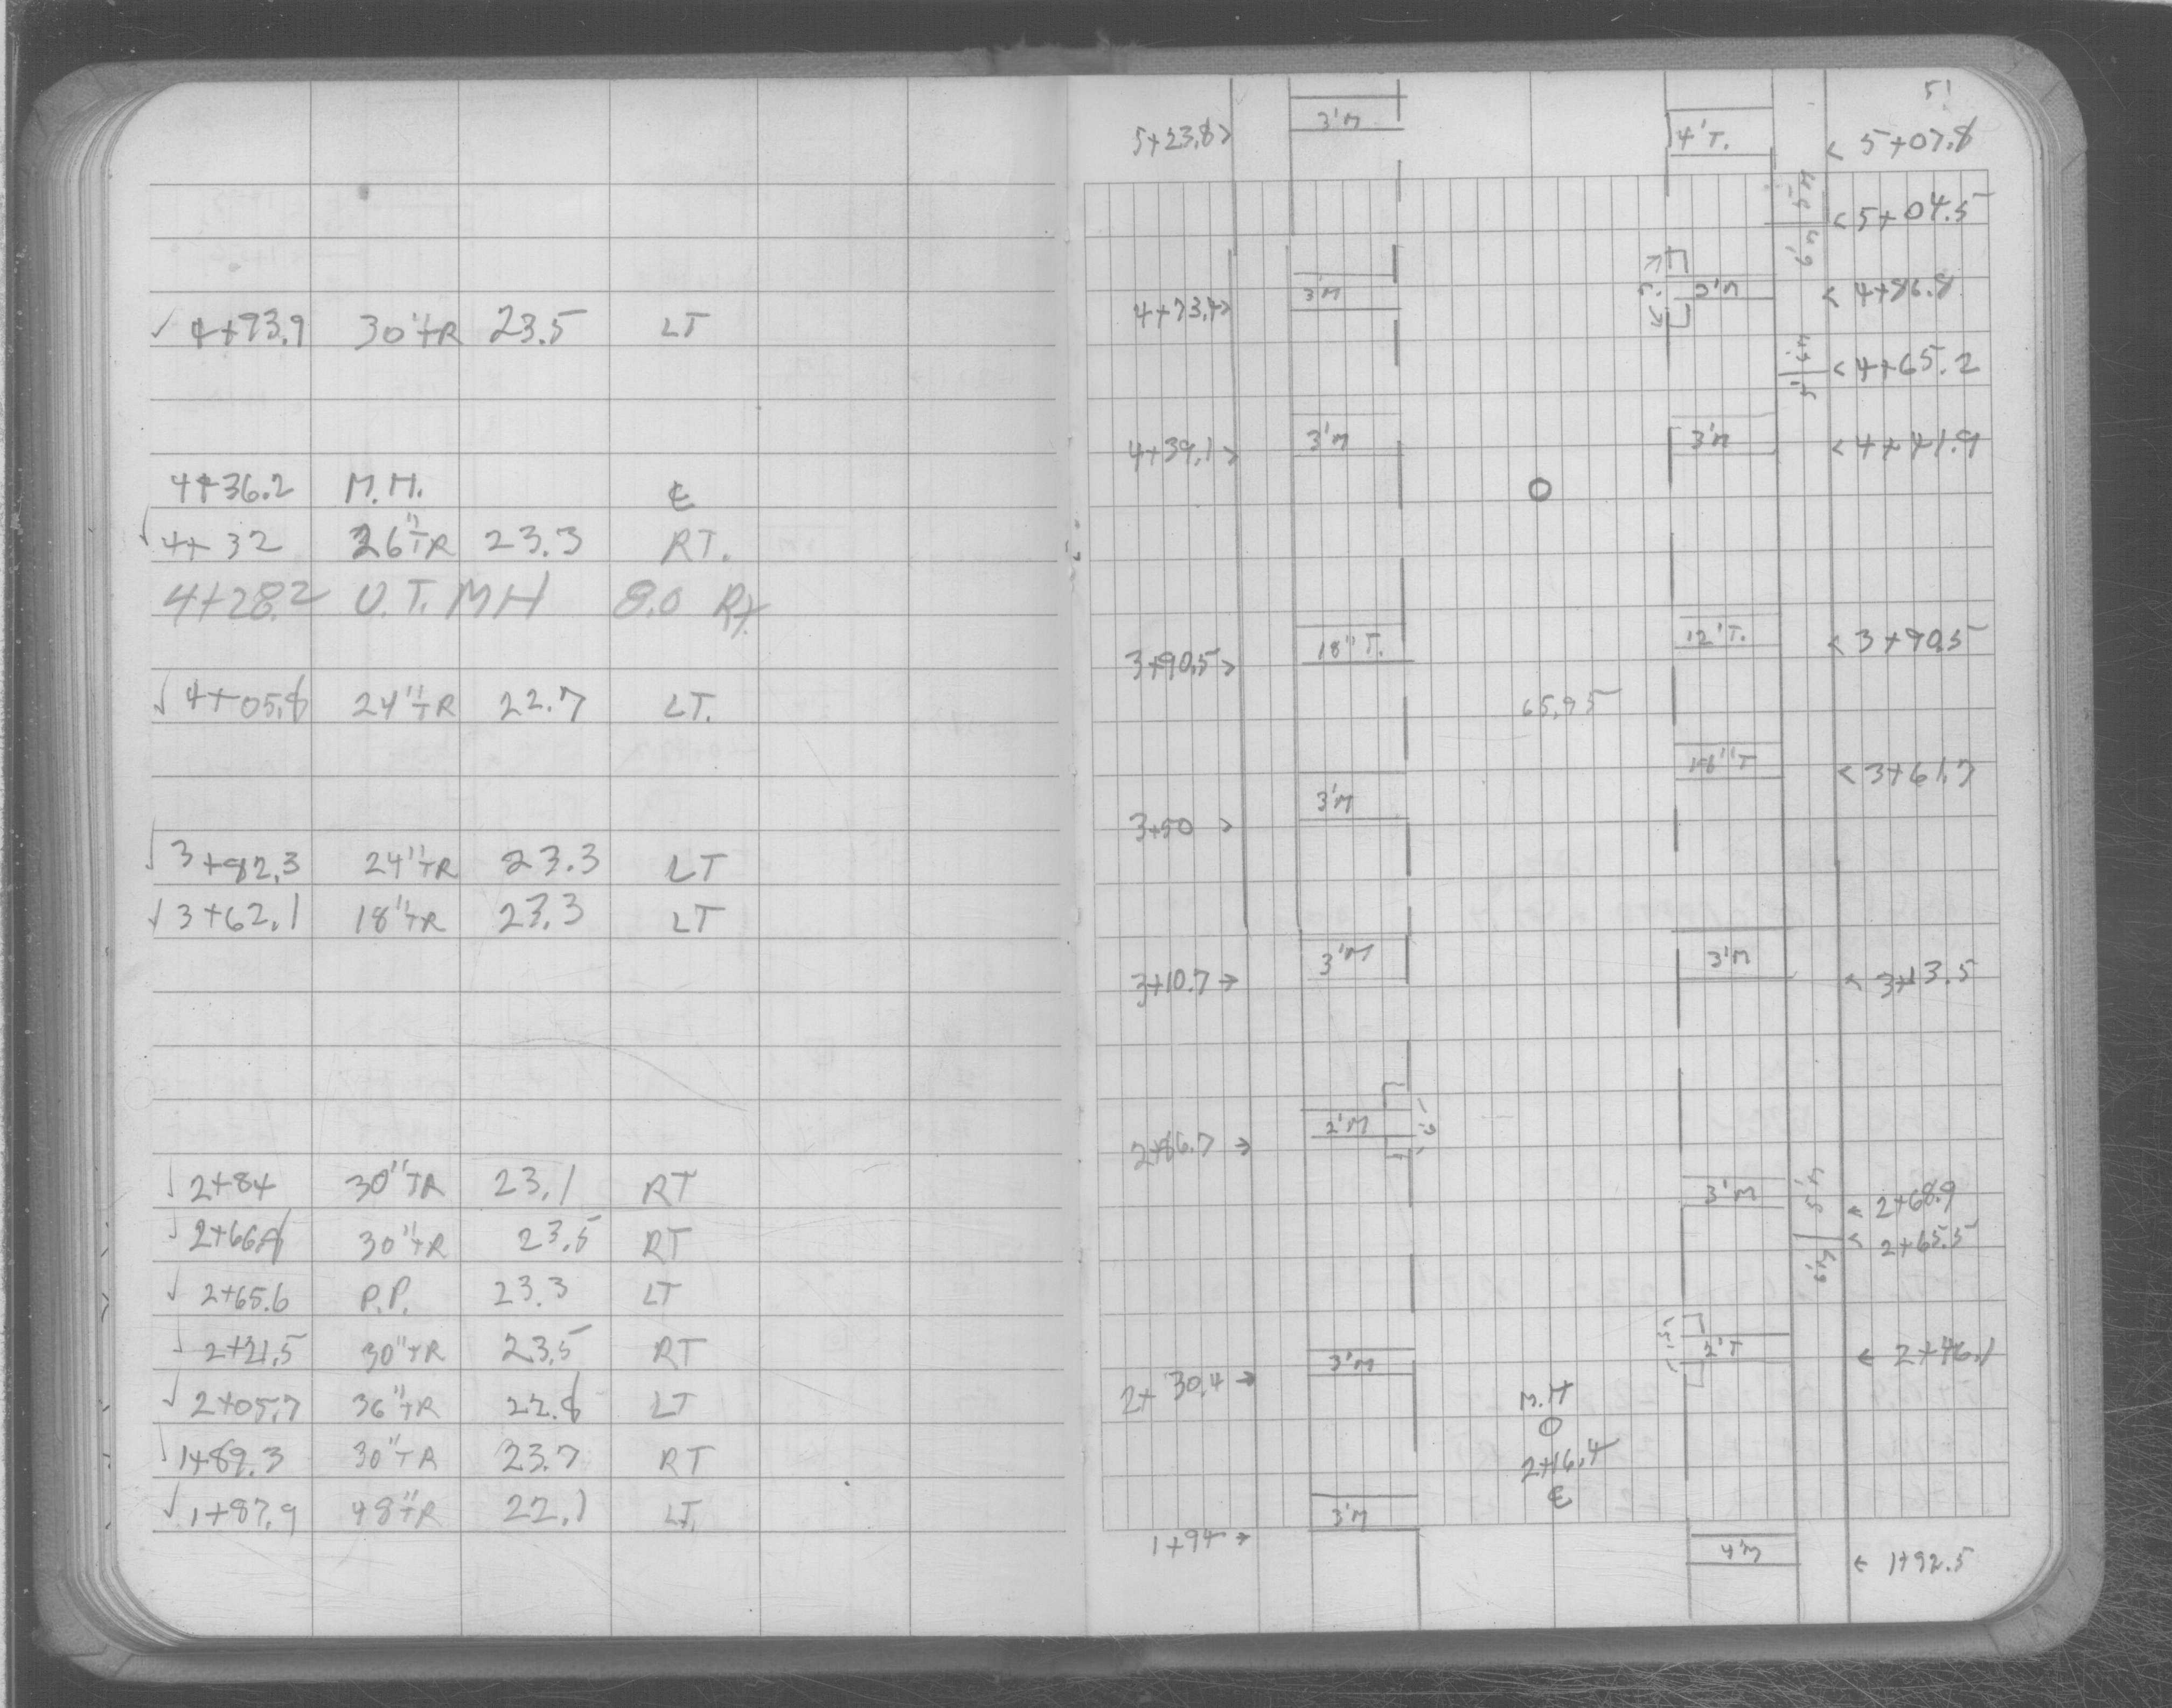 ✓ 4+93.9 30" TR 23.5 LT
4+36.2 M.H. ℄
✓ 4+32 26" TR 23.3 RT.
4+28.2 U.T. MH 8.0 Rt
✓ 4+05.8 24" TR 22.7 LT.
✓ 3+82.3 24" TR 23.3 LT
✓ 3+62.1 18" TR 23.3 LT
✓ 2+84 30" TR 23.1 RT
✓ 30" TR 23.5 RT
✓ 2+65.6 P.P. 23.3 LT
✓ 2+21.5 30" TR 23.5 RT
✓ 2+05.7 36" TR 22.8 LT
✓ 1+89.3 30" TR 23.7 RT
✓ 1+87.9 48" TR 22.1 LT.
51
5+23.8> 3'M 4'T. < 5+07.8
<5+04.5
3'M 3'M < 4+86.8
<4+65.2
4+39.1> 3'M 3'M <4+41.9
3+90.5> 18" T. 12'T. < 3+90.5
65.95
18"T <3+61.7
3+50 > 3'M
3+10.7 → 3'M 3'M < 3+13.5
2+86.7 → 2'M
3'M ← 2+68.9
< 2+65.5
2+30.4 → 3'M 2'T ← 2+46.1
M.H
2+16.4
℄
1+94 → 3'M
4'M ← 1+92.5